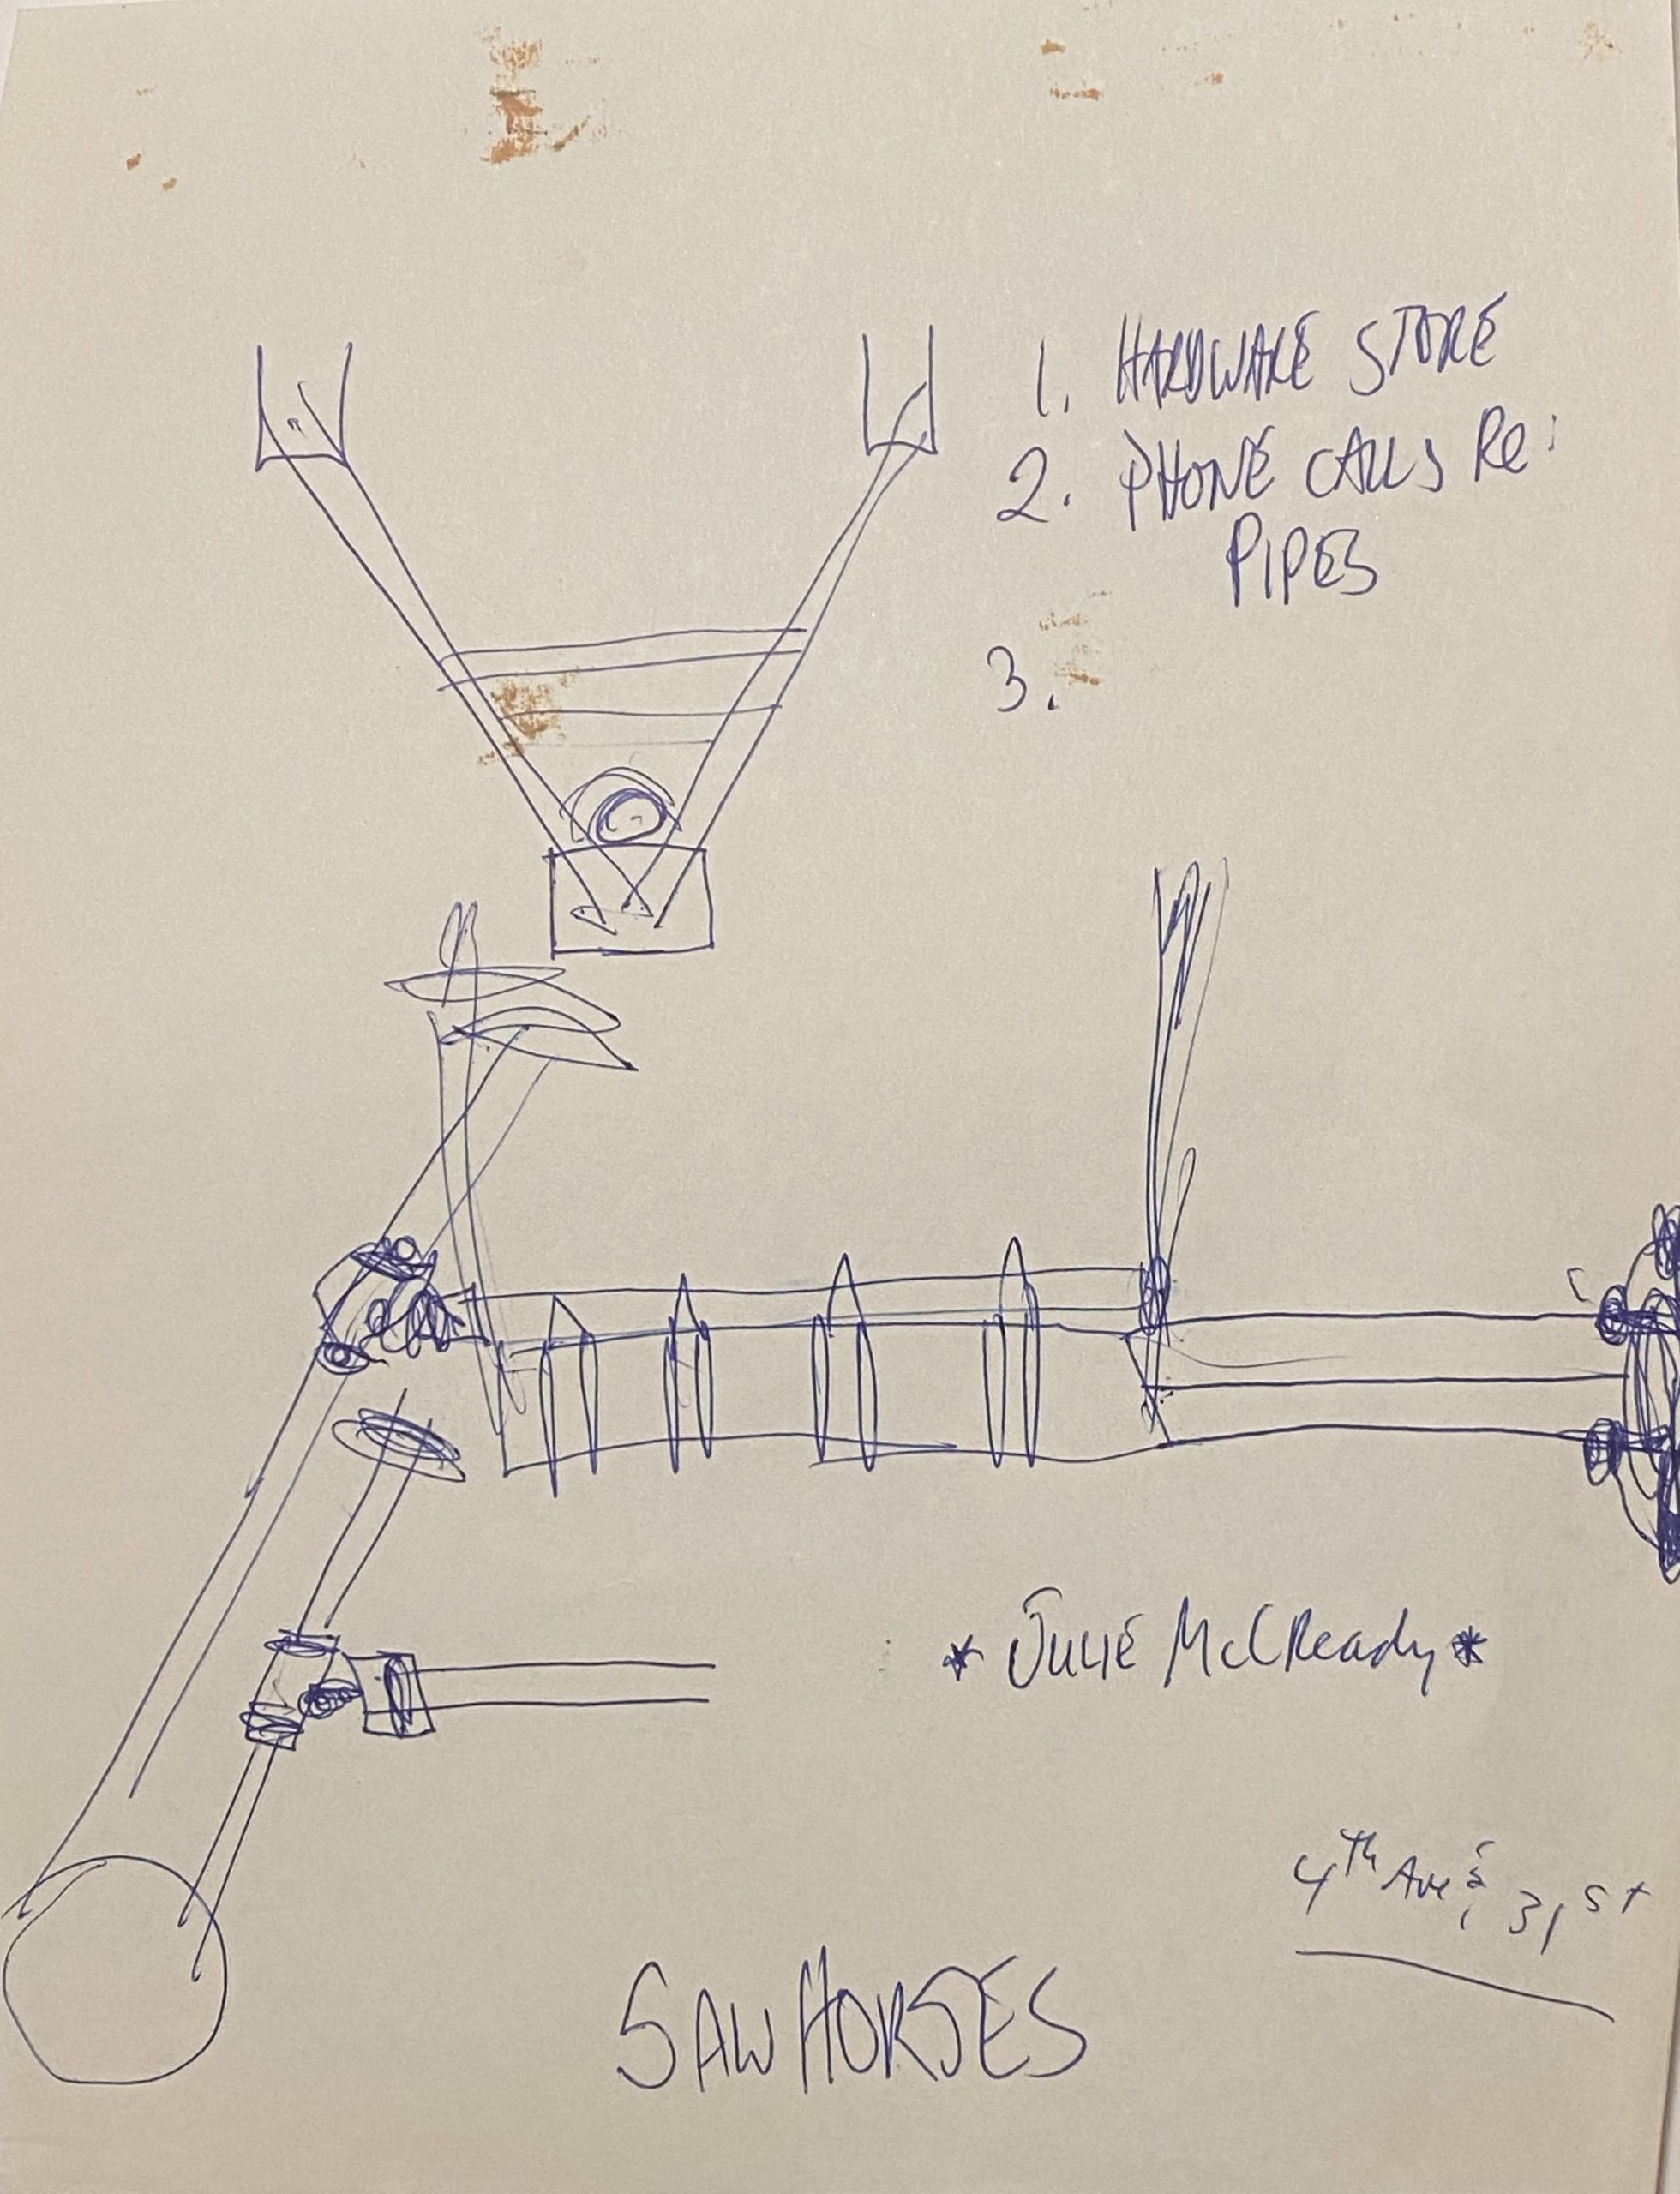 1. HARDWARE STORE
2. PHONE CALLS Re:
PIPES
3.
* JULIE McCReady *
4th Ave & 31st
SAWHORSES